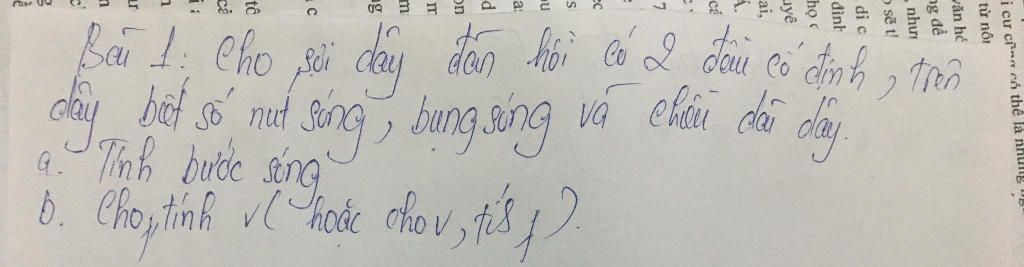 Bài 1: Cho sợi dây đàn hồi có 2 đầu cố định, trên
dây biết số nút sóng, bụng sóng và chiều dài dây.
a. Tính bước sóng
b. Cho f, tính v ( hoặc cho v, tìs f ).